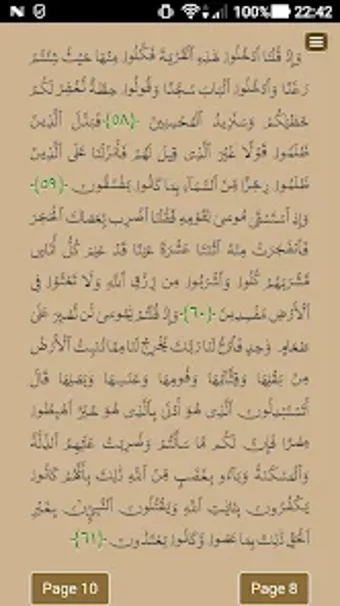 22:42 100%
وَإِذْ قُلْنَا ٱدْخُلُوا۟ هَٰذِهِ ٱلْقَرْيَةَ فَكُلُوا۟ مِنْهَا حَيْثُ شِئْتُمْ
رَغَدًا وَٱدْخُلُوا۟ ٱلْبَابَ سُجَّدًا وَقُولُوا۟ حِطَّةٌ نَّغْفِرْ لَكُمْ
خَطَٰيَٰكُمْ وَسَنَزِيدُ ٱلْمُحْسِنِينَ -﴿٥٨﴾- فَبَدَّلَ ٱلَّذِينَ
ظَلَمُوا۟ قَوْلًا غَيْرَ ٱلَّذِى قِيلَ لَهُمْ فَأَنزَلْنَا عَلَى ٱلَّذِينَ
ظَلَمُوا۟ رِجْزًا مِّنَ ٱلسَّمَآءِ بِمَا كَانُوا۟ يَفْسُقُونَ -﴿٥٩﴾-
وَإِذِ ٱسْتَسْقَىٰ مُوسَىٰ لِقَوْمِهِۦ فَقُلْنَا ٱضْرِب بِّعَصَاكَ ٱلْحَجَرَ
فَٱنفَجَرَتْ مِنْهُ ٱثْنَتَا عَشْرَةَ عَيْنًا قَدْ عَلِمَ كُلُّ أُنَاسٍ
مَّشْرَبَهُمْ كُلُوا۟ وَٱشْرَبُوا۟ مِن رِّزْقِ ٱللَّهِ وَلَا تَعْثَوْا۟ فِى
ٱلْأَرْضِ مُفْسِدِينَ -﴿٦٠﴾- وَإِذْ قُلْتُمْ يَٰمُوسَىٰ لَن نَّصْبِرَ عَلَىٰ
طَعَامٍ وَٰحِدٍ فَٱدْعُ لَنَا رَبَّكَ يُخْرِجْ لَنَا مِمَّا تُنۢبِتُ ٱلْأَرْضُ
مِنۢ بَقْلِهَا وَقِثَّآئِهَا وَفُومِهَا وَعَدَسِهَا وَبَصَلِهَا قَالَ
أَتَسْتَبْدِلُونَ ٱلَّذِى هُوَ أَدْنَىٰ بِٱلَّذِى هُوَ خَيْرٌ ٱهْبِطُوا۟
مِصْرًا فَإِنَّ لَكُم مَّا سَأَلْتُمْ وَضُرِبَتْ عَلَيْهِمُ ٱلذِّلَّةُ
وَٱلْمَسْكَنَةُ وَبَآءُو بِغَضَبٍ مِّنَ ٱللَّهِ ذَٰلِكَ بِأَنَّهُمْ كَانُوا۟
يَكْفُرُونَ بِـَٔايَٰتِ ٱللَّهِ وَيَقْتُلُونَ ٱلنَّبِيِّـۧنَ بِغَيْرِ
ٱلْحَقِّ ذَٰلِكَ بِمَا عَصَوا۟ وَّكَانُوا۟ يَعْتَدُونَ -﴿٦١﴾-
Page 10 Page 8